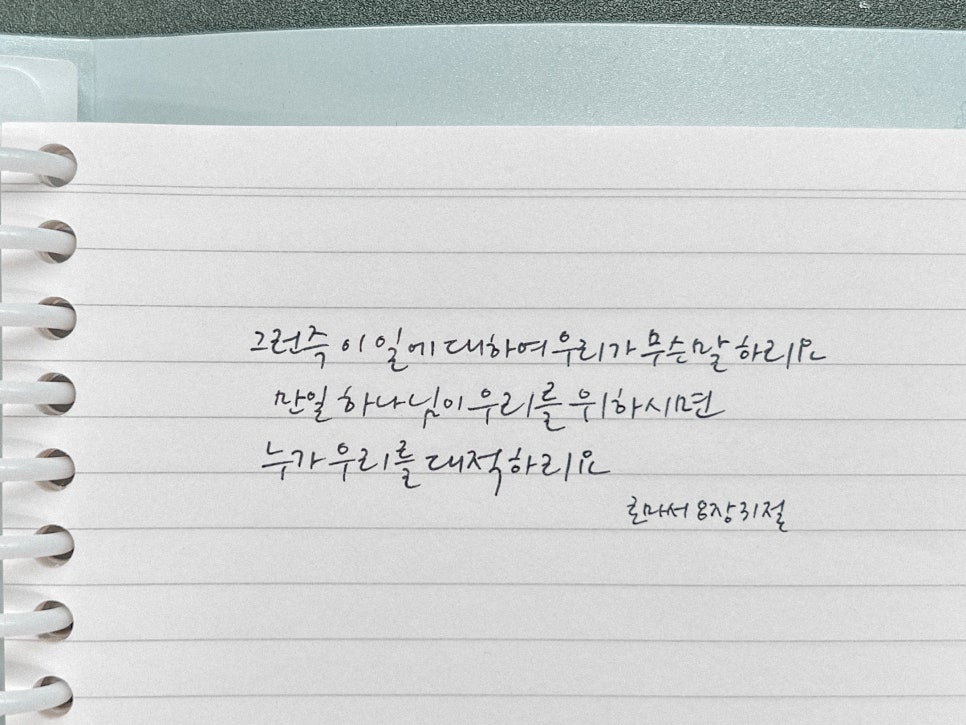 그런즉 이 일에 대하여 우리가 무슨 말 하리요
만일 하나님이 우리를 위하시면
누가 우리를 대적하리요
로마서 8장 31절